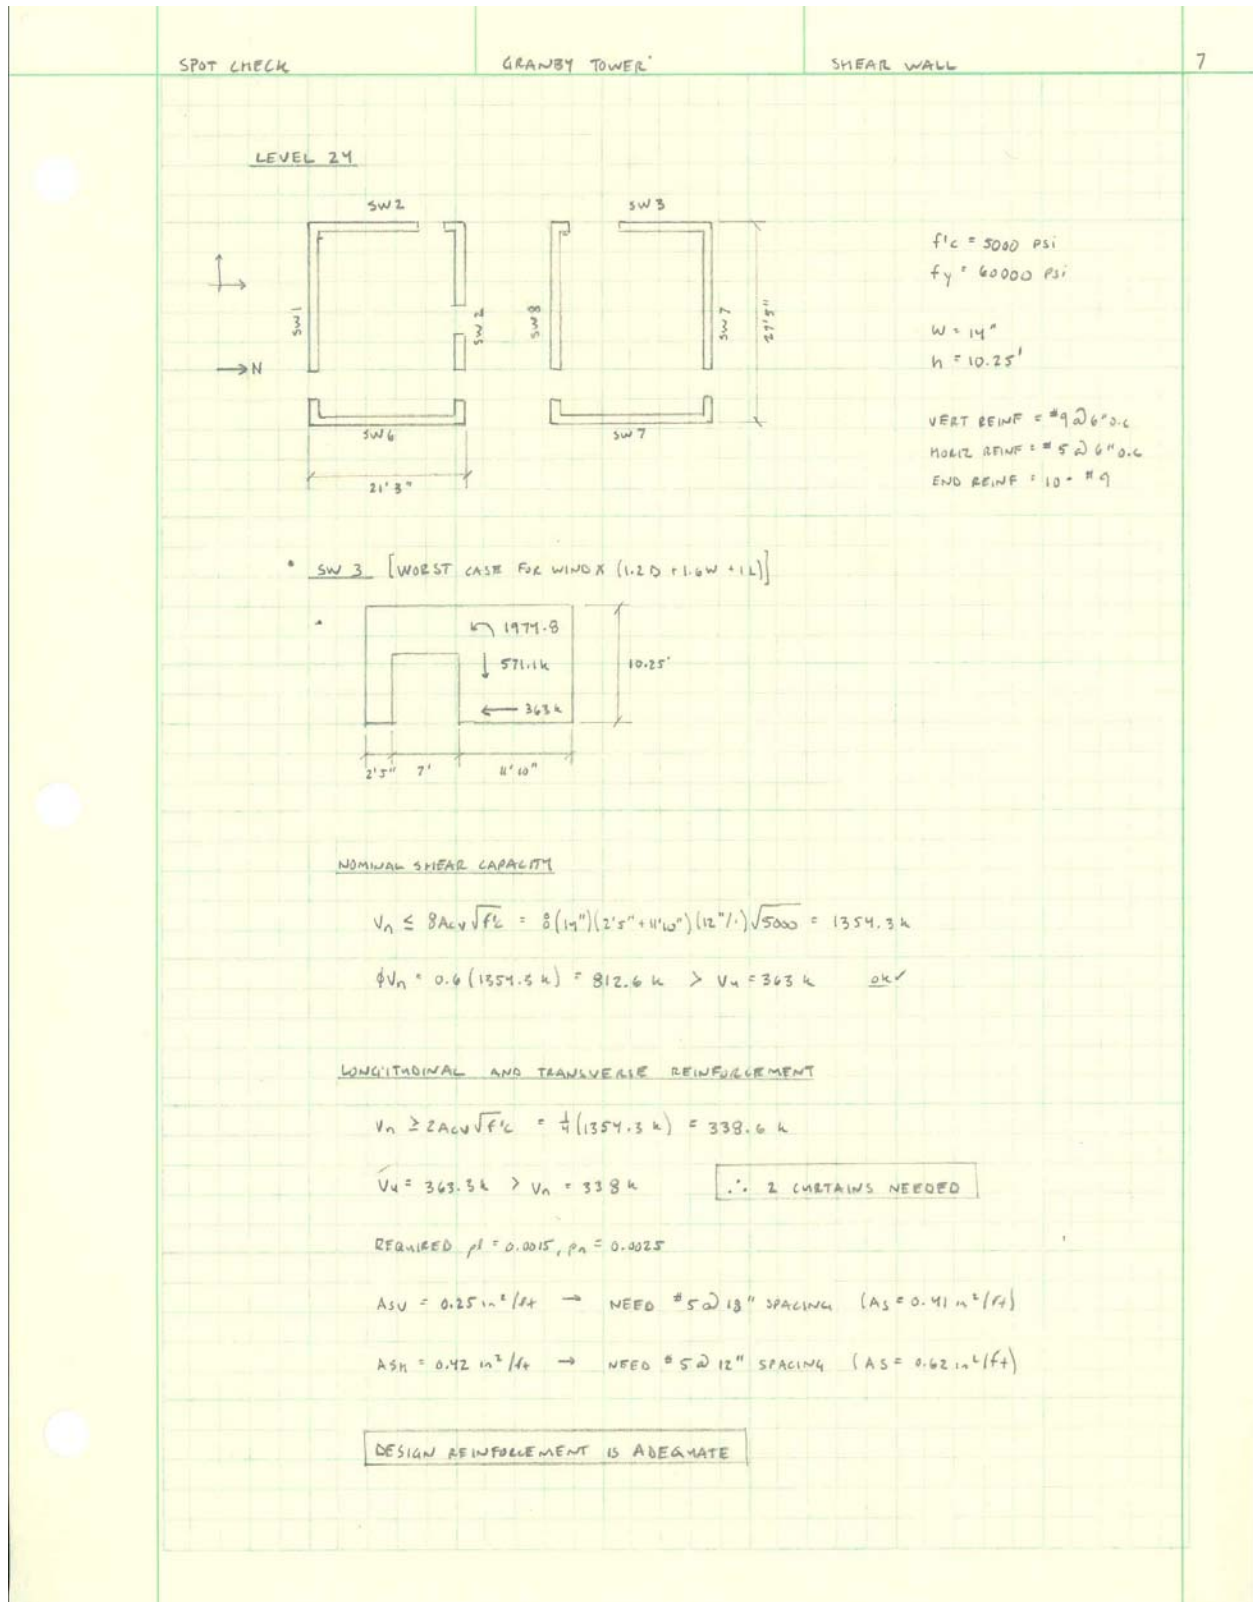 SPOT CHECK GRANBY TOWER SHEAR WALL 7
LEVEL 24
SW2 SW3
f'c = 5000 psi
fy = 60000 psi
SW1 SW2 SW8 SW7 27'5"
W = 14"
h = 10.25'
→ N
VERT REINF = #9 @ 6" o.c
HORIZ REINF = #5 @ 6" o.c
END REINF = 10 - #9
SW6 SW7
21' 3"
• SW 3 [WORST CASE FOR WIND X (1.2D + 1.6W + 1L)]
1974.8
571.1k
10.25'
← 363k
2'5" 7' 11'10"
NOMINAL SHEAR CAPACITY
Vn ≤ 8Acv√f'c = 8(14")(2'5" + 11'10")(12"/')√5000 = 1354.3 k
ϕVn = 0.6(1354.3 k) = 812.6 k > Vu = 363 k ok✓
LONGITUDINAL AND TRANSVERSE REINFORCEMENT
Vn ≥ 2Acv√f'c = 1/4(1354.3 k) = 338.6 k
Vu = 363.3k > Vn = 338 k ∴ 2 CURTAINS NEEDED
REQUIRED ρl = 0.0015, ρn = 0.0025
Asv = 0.25 in²/ft → NEED #5 @ 18" SPACING (As = 0.41 in²/ft)
Ash = 0.42 in²/ft → NEED #5 @ 12" SPACING (As = 0.62 in²/ft)
DESIGN REINFORCEMENT IS ADEQUATE